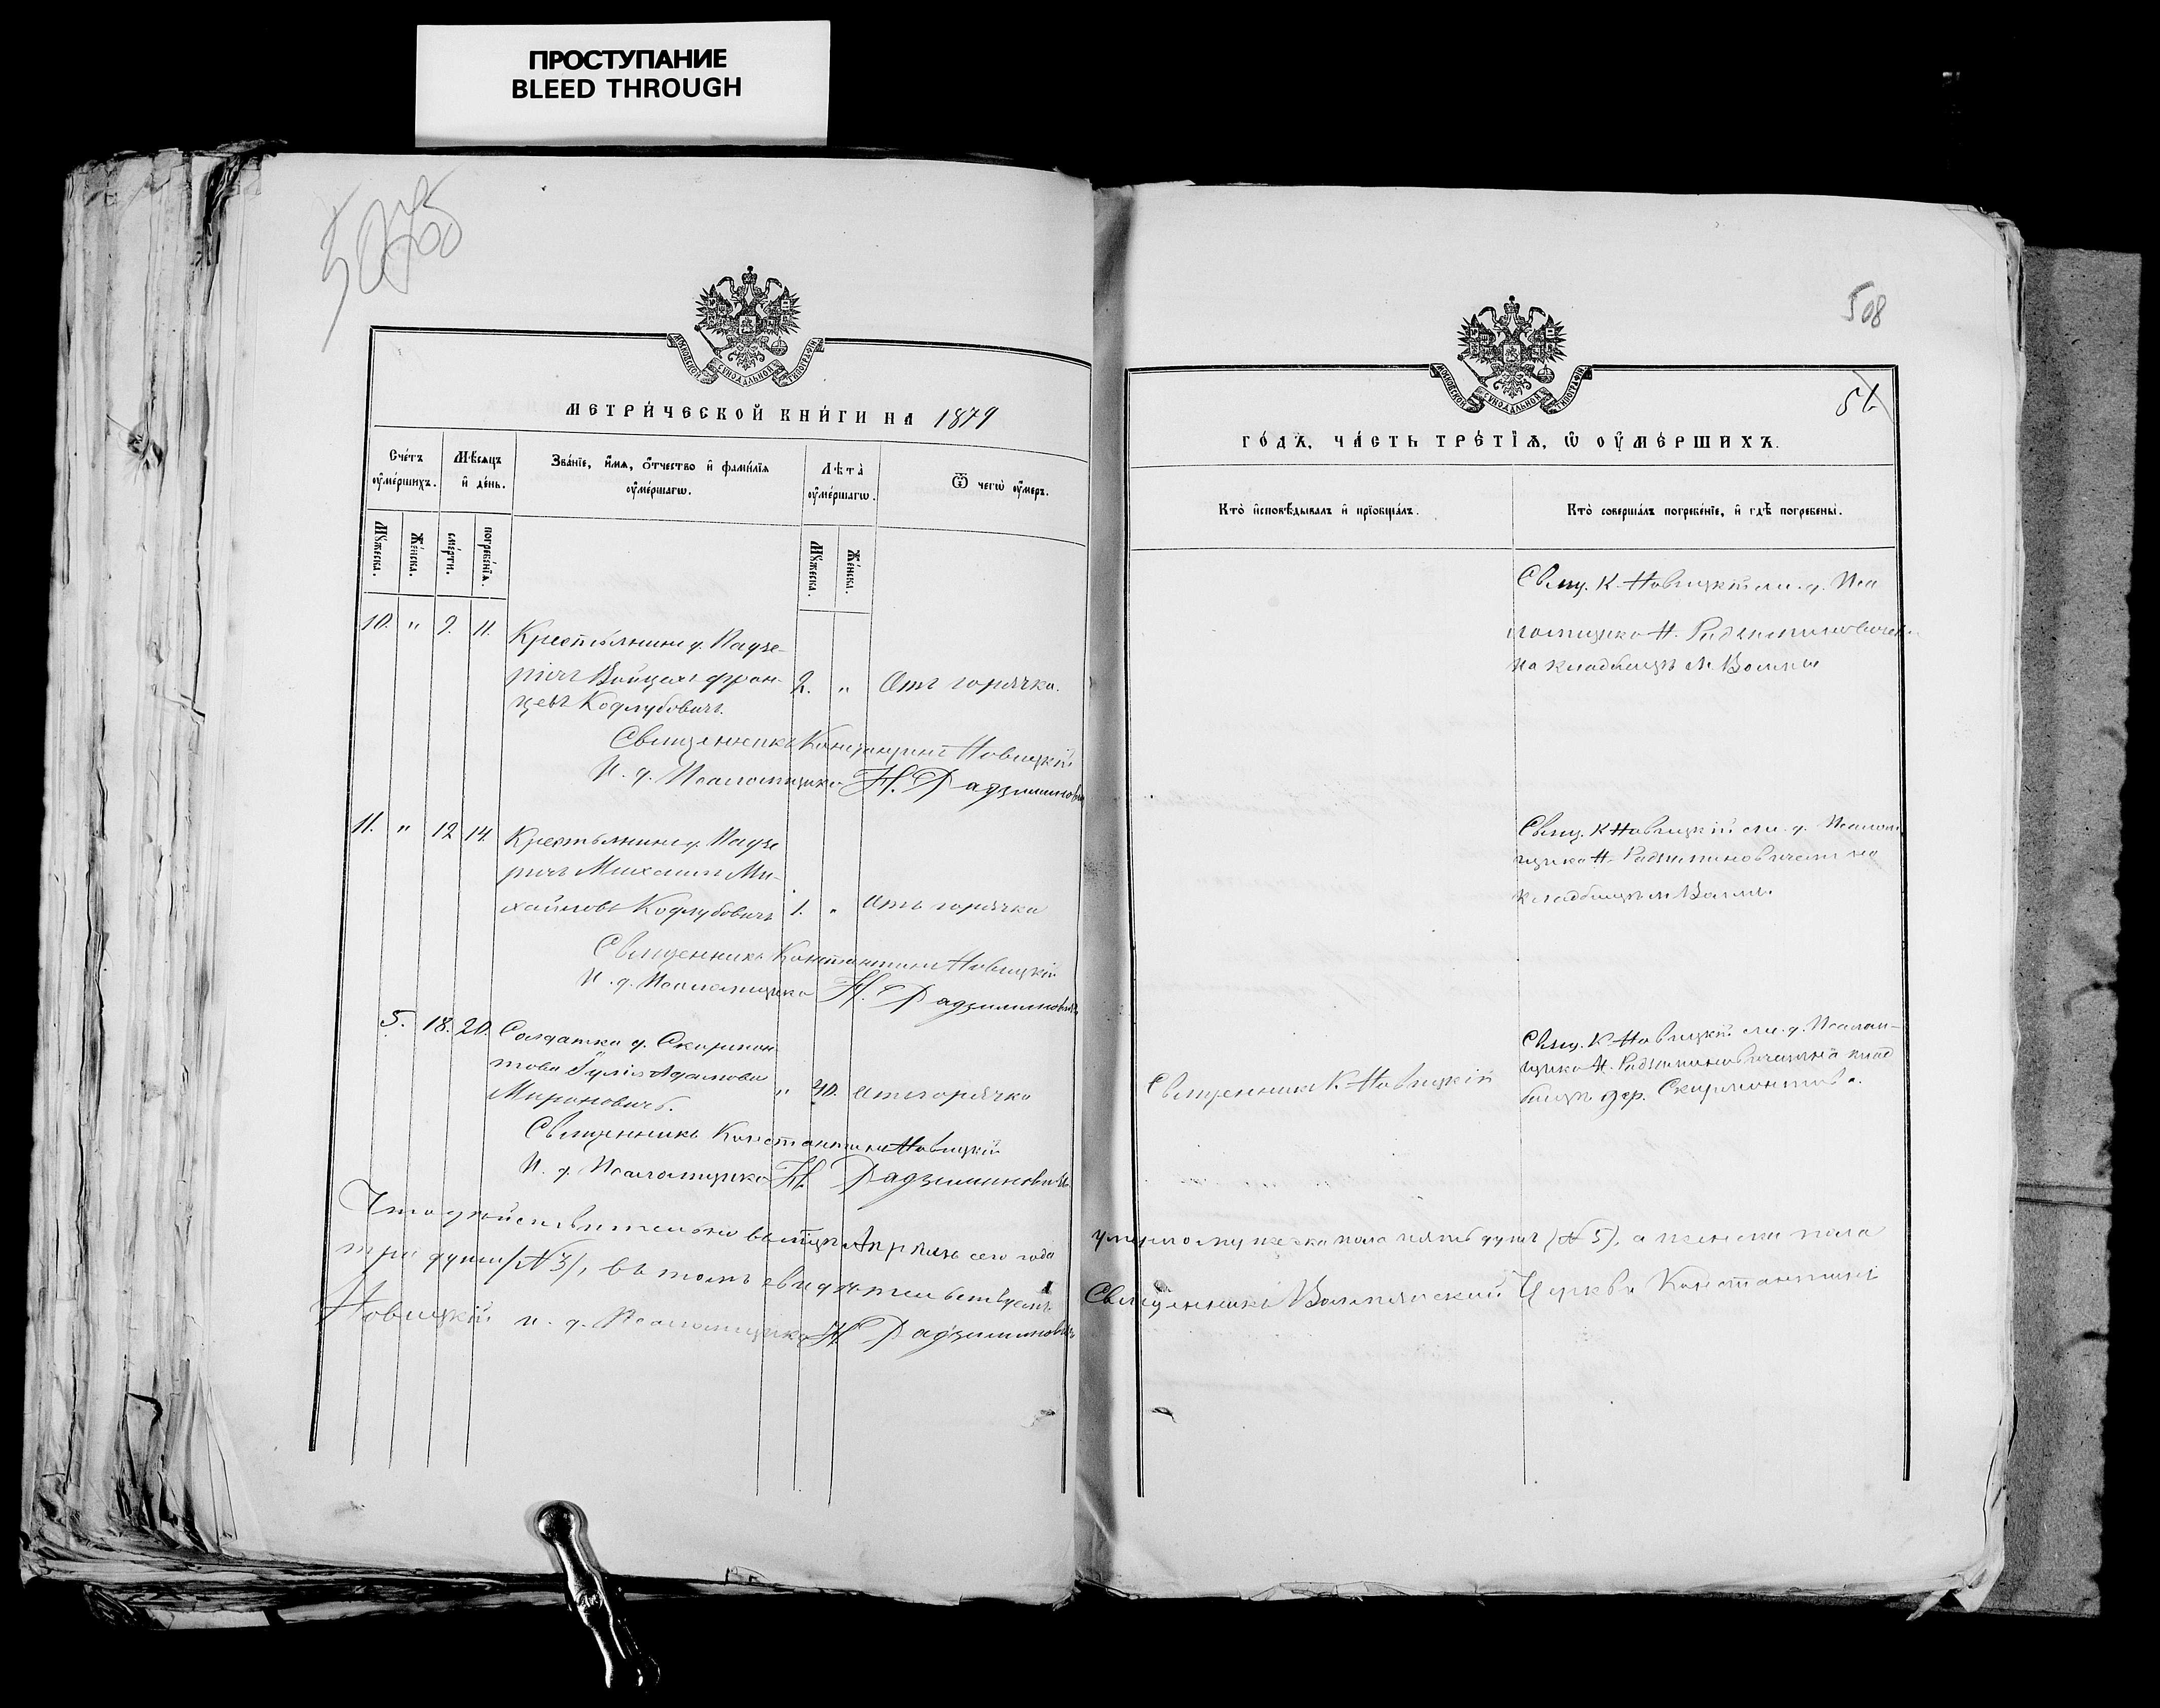 ПРОСТУПАНИЕ
BLEED THROUGH
508
МЕТРИ́ЧЕСКОЙ КНИ́ГИ НА 1879
Сче́тъ оу҆ме́ршихъ.
Мѣ́сяцъ и҆ де́нь.
Зва́нїе, и҆́мя, ѻ҆́тчество и҆ фами́лїя оу҆ме́ршагѡ.
Лѣ́та оу҆ме́ршагѡ.
Ѿ чегѡ̀ оу҆́меръ.
Мꙋ́жеска.
Же́нска.
сме́рти.
погребе́нїя.
Мꙋ́жеска.
Же́нска.
10. " 9. 11. Крестьянинъ д. Падзе-
ричъ Войцехъ Фран- 2. " Отъ горячки.
цевъ Кодлубовичъ.
Священникъ Константинъ Новицкій
И. д. Псаломщика Н. Радзиминовичъ
11. " 12 14. Крестьянинъ д. Падзе
ричъ Михаилъ Ми-
хайловъ Кодлубовичъ 1. " Отъ горячки
Священникъ Константинъ Новицкій
И. д. Псаломщика Н. Радзиминовичъ
5. 18. 20. Солдатка д. Скирмон
това Іулія Адамова
Мироновичъ. " 40. отъ горячки
Священникъ Константинъ Новицкій
И. д. Псаломщика Н. Радзиминовичъ
Что действительно въ Апрѣлѣ сего года
три души (№ 3), въ томъ свидѣтельствуемъ
Новицкій и. д. Псаломщика Н. Радзиминовичъ
508
51.
ГО́ДЪ, ЧА́СТЬ ТРЕ́ТЇЯ, Ѡ҆ ОУ҆МЕ́РШИХЪ.
Кто̀ и҆сповѣ́дывалъ и҆ прїѡбща́лъ.
Кто̀ соверша́лъ погребе́нїе, и҆ гдѣ̀ погребены̀.
Свящ. К. Новицкій съ и. д. Пса
ломщика Н. Радзиминовичемъ
на кладбищѣ м. Волмы
Свящ. К Новицкій съ и. д. Псалом
щика Н. Радзиминовичемъ на
кладбищѣ м Волмы.
Священникъ К. Новицкій
Свящ. К Новицкій съ и. д. Псалом-
щика Н. Радзиминовичемъ на клад
бищѣ дер. Скирмонтово.
умерло мужеска пола пять душъ (№ 5), а женска пола
Священникъ Волмянской Церкви Константинъ